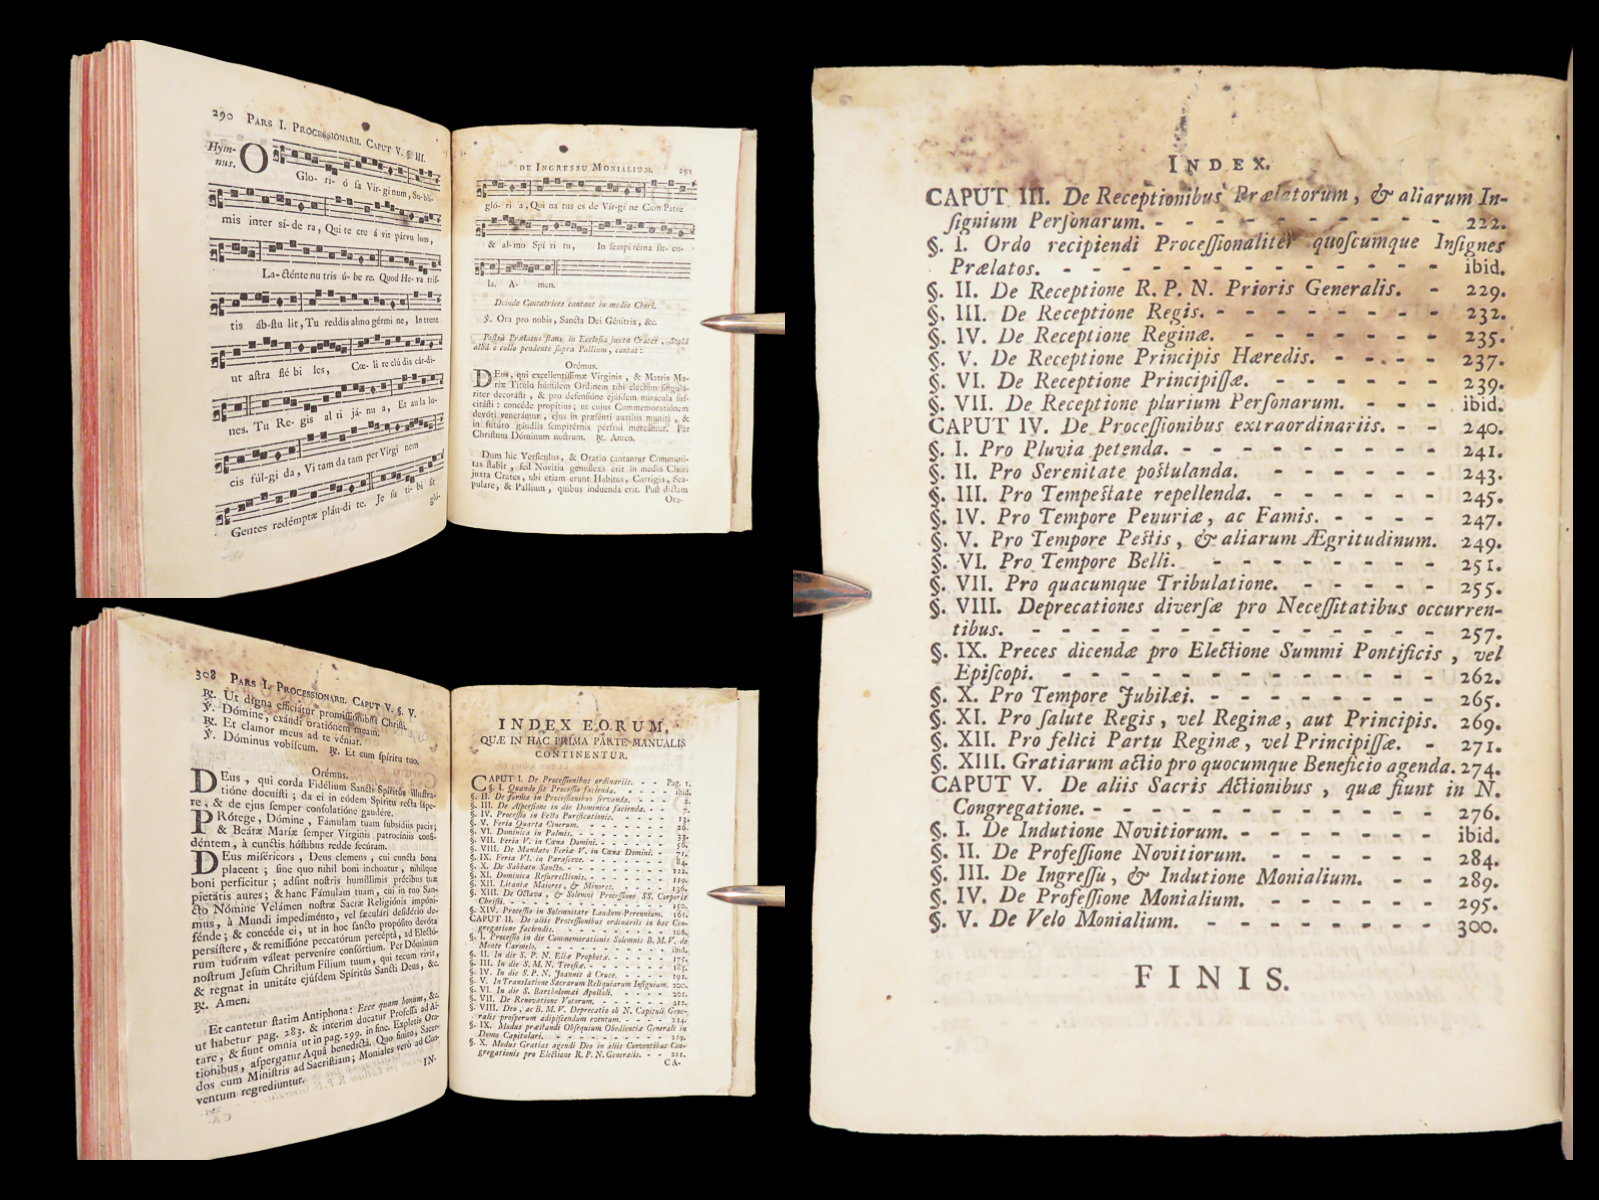 290 PARS I. PROCESSIONARII. CAPUT V. §. III.
Hym-
nus.
O Glo- ri- ó sa Vir- ginum, Su-blí-
mis inter sí- de ra, Qui te cre á vit párvu lum,
La- cténte nu tris ú- be re. Quod He- va tris-
tis áb-stu lit, Tu reddis almo gérmi ne, In trent
ut astra flé bi les, Cœ- li re clú dis cár-di-
nes. Tu Re- gis al ti já- nu a, Et au la lu-
cis fúl- gi da, Vi tam da tam per Vírgi nem
Gentes redémptæ pláu-di te. Je su ti- bi sit
gló-
DE INGRESSU MONIALIUM. 291
gló- ri a, Qui na tus es de Vir- gi ne Cum Patre
& al-mo Spí ri tu, In sempi térna sæ- cu-
la. A- men.
Deinde Cantatrices cantant in medio Chori.
℣. Ora pro nobis, Sancta Dei Génitrix, &c.
Posteà Prælatus stans in Ecclesia juxta Crates, Stolâ
albâ è collo pendente supra Pallium, cantat:
Orémus.
DEus, qui excellentíssimæ Vírginis, & Matris Ma-
ríæ Título húmilem Ordinem tibi eléctum singulá-
riter decorásti, & pro defensióne ejúsdem mirácula sus-
citásti: concéde propítius, ut cujus Commemoratiónem
devóti venerámur, ejus in præsénti auxíliis muníti, &
in futúro gáudiis sempitérnis pérfrui mereámur. Per
Christum Dóminum nostrum. ℟. Amen.
Dum hic Versiculus, & Oratio cantantur Communi-
tas stabit, sed Novitia genuflexa erit in medio Chori
juxta Crates, ubi etiam erunt Habitus, Corrigia, Sca-
pulare, & Pallium, quibus induenda erit. Post dictam
Ora-
308 PARS I. PROCESSIONARII. CAPUT V. §. V.
℟. Ut digna efficiátur promissiónibus Christi.
℣. Dómine, exáudi oratiónem meam.
℟. Et clamor meus ad te véniat.
℣. Dóminus vobíscum. ℟. Et cum spíritu tuo.
Orémus.
DEus, qui corda Fidélium Sancti Spíritûs illustra-
tióne docuísti; da ei in eódem Spíritu recta sápe-
re, & de ejus semper consolatióne gaudére.
PRótege, Dómine, Fámulam tuam subsídiis pacis;
& Beátæ Maríæ semper Vírginis patrocíniis confi-
déntem, à cunctis hóstibus redde secúram.
DEus miséricors, Deus clemens, cui cuncta bona
placent; sine quo nihil boni inchoátur, nihilque
boni perfícitur; adsint nostris humíllimis précibus tuæ
pietátis aures; & hanc Fámulam tuam, cui in tuo San-
cto Nómine Velámen nostræ Sacræ Religiónis impóni-
mus, à Mundi impediménto, vel sæculári desidério de-
fénde; & concéde ei, ut in hoc sancto propósito devóta
persístere, & remissióne peccatórum percéptâ, ad Electó-
rum tuórum váleat perveníre consórtium. Per Dóminum
nostrum Jesum Christum Fílium tuum, qui tecum vivit,
& regnat in unitáte ejúsdem Spíritûs Sancti Deus, &c.
℟. Amen.
Et cantetur statim Antiphona: Ecce quam bonum, &c.
ut habetur pag. 283. & interim ducatur Professa ad Al-
tare, & fiunt omnia ut in pag. 299. in fine. Expletis Ora-
tionibus, aspergatur Aquâ benedictâ. Quo finito, Sacer-
dos cum Ministris ad Sacristiam; Moniales verò ad Con-
ventum regrediuntur.
IN-
INDEX EORUM,
QUÆ IN HAC PRIMA PARTE MANUALIS
CONTINENTUR.
CAPUT I. De Processionibus ordinariis. - - Pag. 1.
§. I. Quando sit Processio facienda. - - - - ibid.
§. II. De forma in Processionibus servanda. - - - 2.
§. III. De Aspersione in die Dominica facienda. - - - 7.
§. IV. Processio in Festo Purificationis. - - - - 13.
§. V. Feria Quarta Cinerum. - - - - 26.
§. VI. Dominica in Palmis. - - - - 33.
§. VII. Feria V. in Cœna Domini. - - - - 56.
§. VIII. De Mandato Feriæ V. in Cœna Domini. - - 71.
§. IX. Feria VI. in Parasceve. - - - - 84.
§. X. De Sabbato Sancto. - - - - 112.
§. XI. Dominica Resurrectionis. - - - - 119.
§. XII. Litaniæ Maiores, & Minores. - - - - 136.
§. XIII. De Octava, & Solemni Processione SS. Corporis
Christi. - - - - 150.
§. XIV. Processio in Solemnitate Lausum-Perennium. 161.
CAPUT II. De aliis Processionibus ordinariis in hac Con-
gregatione faciendis. - - - - 166.
§. I. Processio in die Commemorationis Solemnis B. M. V. de
Monte Carmelo. - - - - ibid.
§. II. In die S. P. N. Eliæ Prophetæ. - - - - 175.
§. III. In die S. M. N. Teresiæ. - - - - 185.
§. IV. In die S. P. N. Joannis à Cruce. - - - - 191.
§. V. In Translatione Sacrarum Reliquiarum Insignium. 200.
§. VI. In die S. Bartholomæi Apostoli. - - - - 201.
§. VII. De Renovatione Votorum. - - - - 212.
§. VIII. Deo, ac B. M. V. Deprecatio ob N. Capituli Gene-
ralis prosperum adipiscendum eventum. - - - - 214.
§. IX. Modus præstandi Obsequium Obedientiæ Generali in
Domo Capitulari. - - - - 219.
§. X. Modus Gratias agendi Deo in aliis Conventibus Con-
gregationis pro Electione R. P. N. Generalis. - - 221.
CA-
INDEX.
CAPUT III. De Receptionibus Prælatorum, & aliarum In-
signium Personarum. - - - - - - - - - 222.
§. I. Ordo recipiendi Processionaliter quoscumque Insignes
Prælatos. - - - - - - - - - - - ibid.
§. II. De Receptione R. P. N. Prioris Generalis. - 229.
§. III. De Receptione Regis. - - - - - - - 232.
§. IV. De Receptione Reginæ. - - - - - - - 235.
§. V. De Receptione Principis Hæredis. - - - - 237.
§. VI. De Receptione Principissæ. - - - - - - 239.
§. VII. De Receptione plurium Personarum. - - - ibid.
CAPUT IV. De Processionibus extraordinariis. - - 240.
§. I. Pro Pluvia petenda. - - - - - - - - 241.
§. II. Pro Serenitate postulanda. - - - - - - 243.
§. III. Pro Tempestate repellenda. - - - - - - 245.
§. IV. Pro Tempore Penuriæ, ac Famis. - - - - 247.
§. V. Pro Tempore Pestis, & aliarum Ægritudinum. 249.
§. VI. Pro Tempore Belli. - - - - - - - - 251.
§. VII. Pro quacumque Tribulatione. - - - - - 255.
§. VIII. Deprecationes diversæ pro Necessitatibus occurren-
tibus. - - - - - - - - - - - - - 257.
§. IX. Preces dicendæ pro Electione Summi Pontificis, vel
Episcopi. - - - - - - - - - - - - 262.
§. X. Pro Tempore Jubilæi. - - - - - - - - 265.
§. XI. Pro salute Regis, vel Reginæ, aut Principis. 269.
§. XII. Pro felici Partu Reginæ, vel Principissæ. - 271.
§. XIII. Gratiarum actio pro quocumque Beneficio agenda. 274.
CAPUT V. De aliis Sacris Actionibus, quæ fiunt in N.
Congregatione. - - - - - - - - - - 276.
§. I. De Indutione Novitiorum. - - - - - - - ibid.
§. II. De Professione Novitiorum. - - - - - - 284.
§. III. De Ingressu, & Indutione Monialium. - - - 289.
§. IV. De Professione Monialium. - - - - - - 295.
§. V. De Velo Monialium. - - - - - - - - 300.
FINIS.